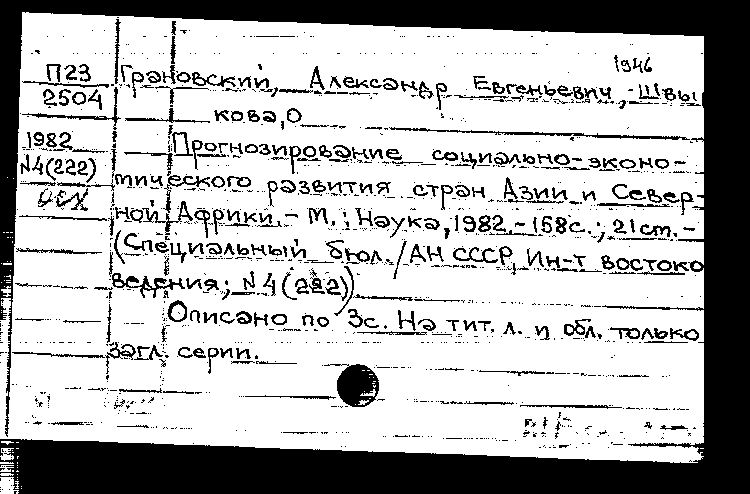 1946
П23 Грановский, Александр Евгеньевич, Швы
2504 кова, О
1982 Прогнозирование социально-эконо-
№4(222) мического развития стран Азии и Север-
ной Африки. - М.: Наука, 1982. - 158с.; 21см. -
(Специальный бюл./АН СССР, Ин-т востоко
ведения; №4(222)
Описано по 3с. На тит. л. и обл. только
загл. серии.